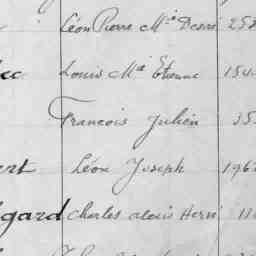 Léon Pierre M.ie Désiré 25
ec Louis M.ie Étienne 154
Francois Julien 35
ert Léon Joseph 196
gard Charles alexis Hervé 11